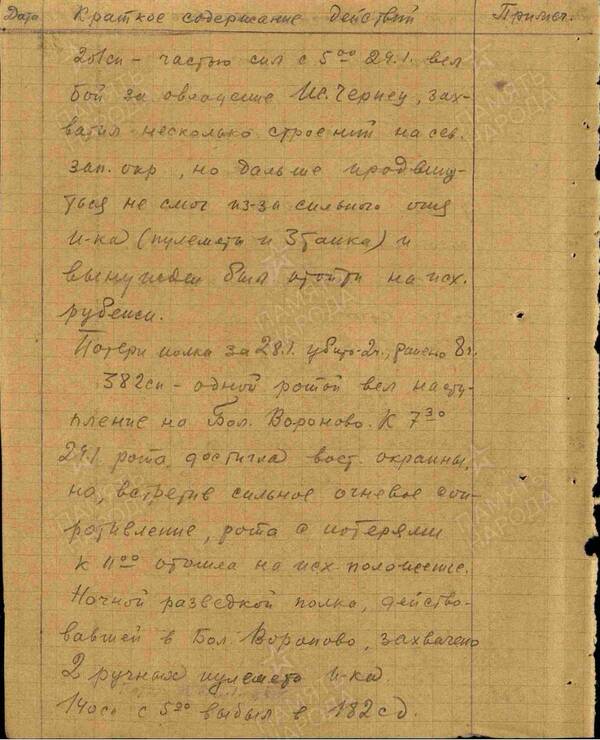 Дата Краткое содержание действий Примеч.
261сп – частью сил с 5⁰⁰ 29.1. вел
бой за овладение Ис. Чернец, зах-
ватил несколько строений на сев.
зап. окр, но дальше продвину-
ться не смог из-за сильного огня
пр-ка (пулеметы и 3 танка) и
вынужден был отойти на исх.
рубежи.
Потери полка за 28.1. убито-2ч., ранено 8ч.
382сп – одной ротой вел насту-
пление на Бол. Вороново. К 7³⁰
29.1 рота достигла вост. окраины,
но, встретив сильное огневое соп-
ротивление, рота с потерями
к 11⁰⁰ отошла на исх. положение.
Ночной разведкой полка, действо-
вавшей в Бол. Вороново, захвачено
2 ручных пулемета пр-ка.
140сп с 5⁰⁰ выбыл в 182сд.
ПАМЯТЬ НАРОДА